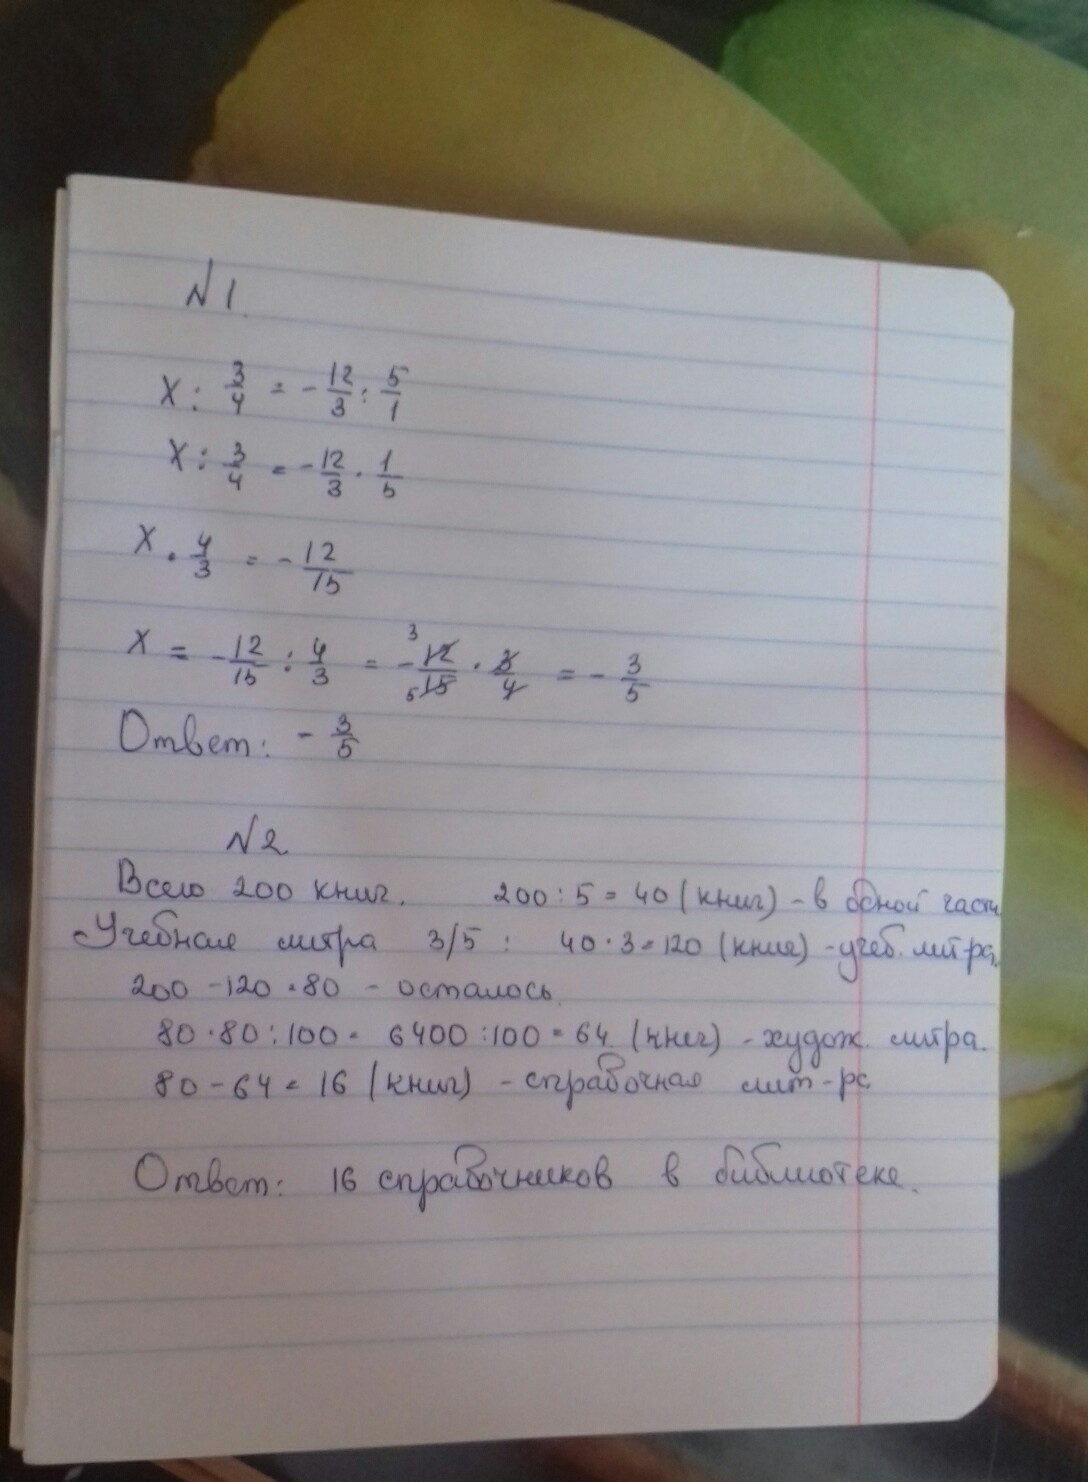 N1.
X : 3/4 = - 12/3 : 5/1
X : 3/4 = - 12/3 · 1/5
X · 4/3 = - 12/15
X = - 12/15 : 4/3 = - 3 12/15 5 · 3/4 = - 3/5
Ответ: - 3/5
N2
Всего 200 книг. 200 : 5 = 40 (книг) - в одной части
Учебная лит-ра 3/5 : 40 · 3 = 120 (книг) - учеб. лит-ра.
200 - 120 = 80 - осталось.
80 · 80 : 100 = 6400 : 100 = 64 (книг) - худож. лит-ра.
80 - 64 = 16 (книг) - справочная лит-ра
Ответ: 16 справочников в библиотеке.